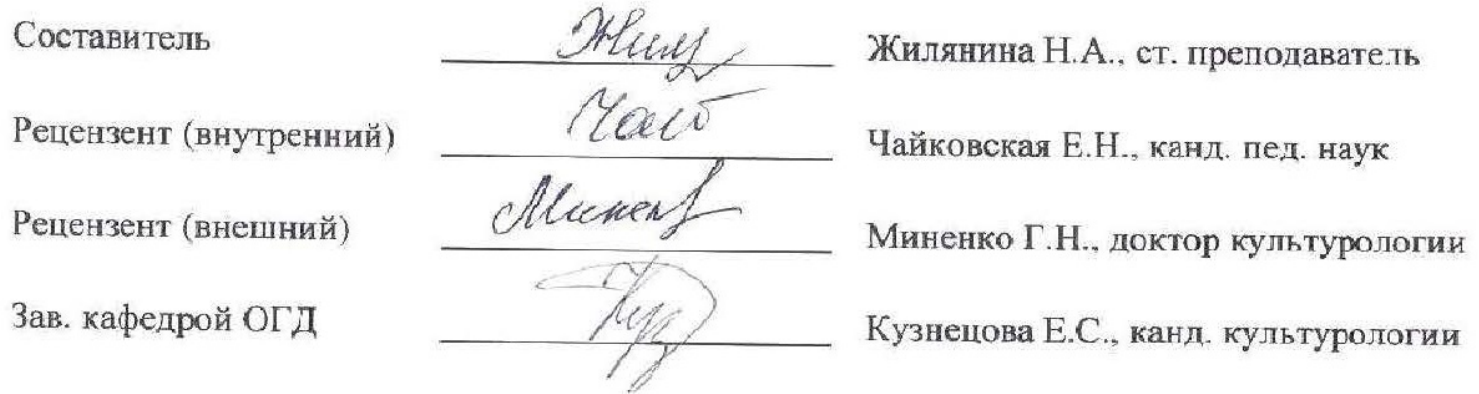 Составитель Жиляни​на Н.А., ст. преподаватель
Рецензент (внутренний) Чайковская Е.Н., канд. пед. наук
Рецензент (внешний) Миненко Г.Н., доктор культурологии
Зав. кафедрой ОГД Кузнецова Е.С., канд. культурологии